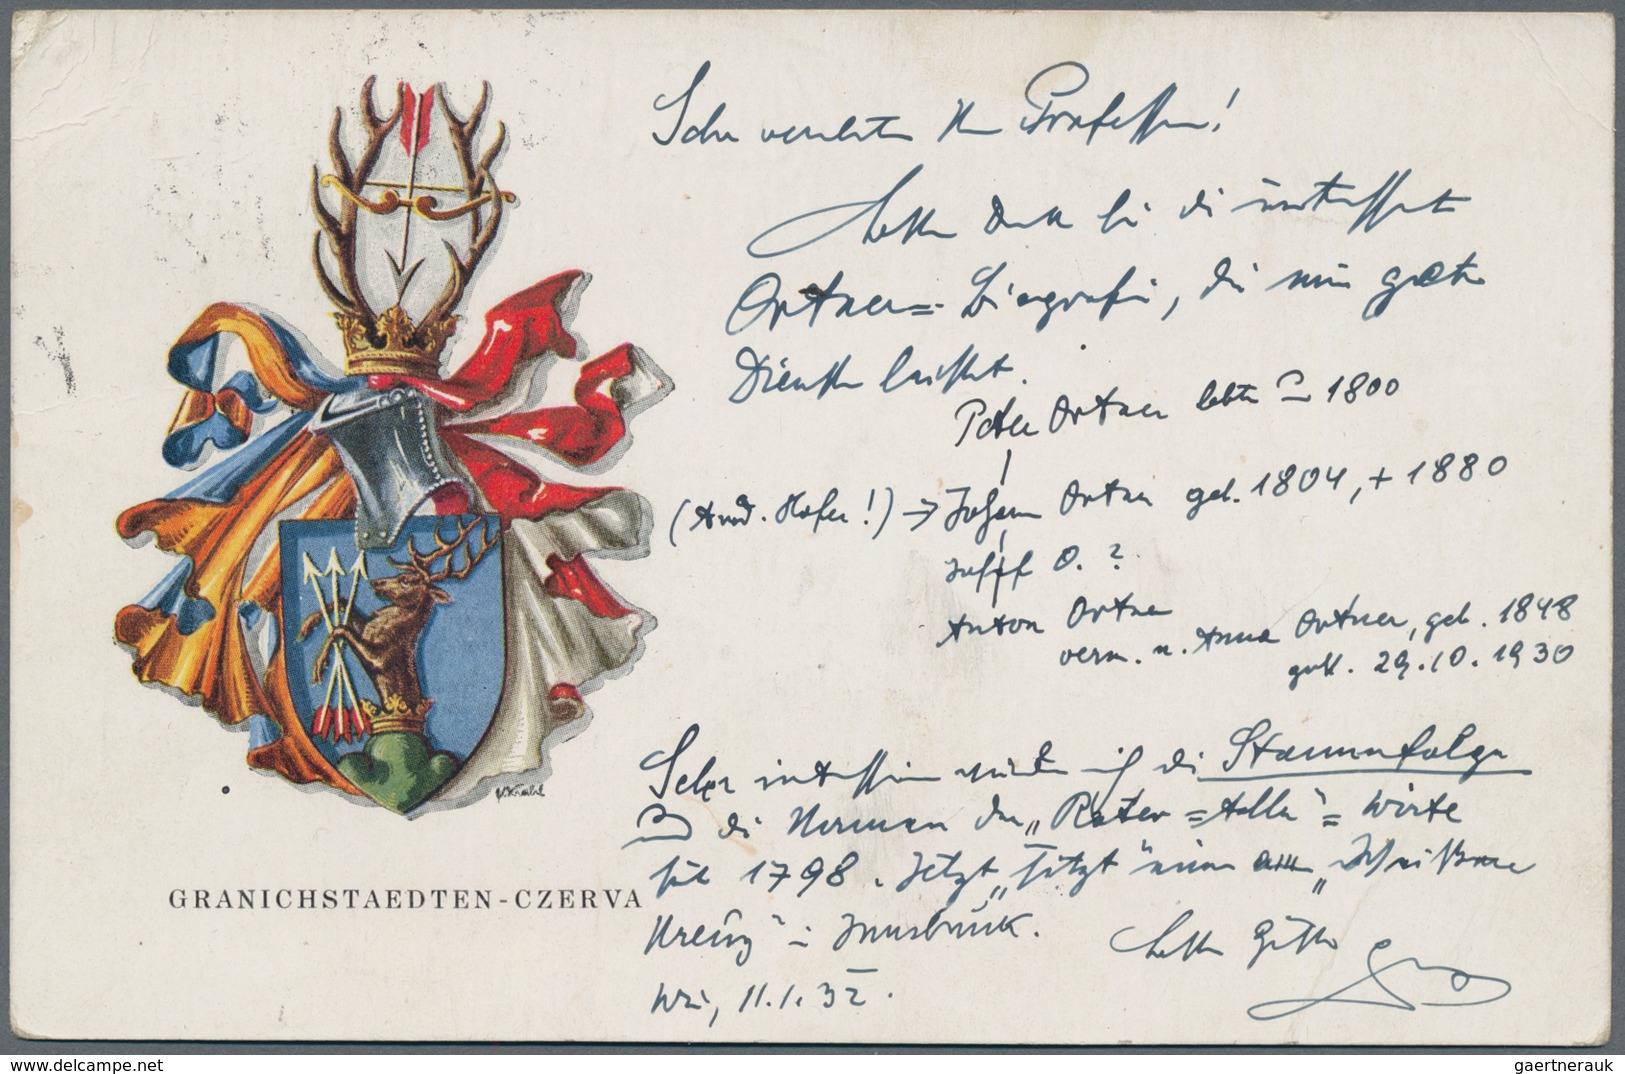 Sehr verehrter Herr Professor!
Besten Dank für die
Ortner=Biografie, die mir gute
Dienste leistet.
Peter Ortner lebte 1800
(And. Hofer!) → Johann Ortner geb. 1804, + 1880
Josef O. ?
Anton Ortner
verm. m. Anna Ortner, geb. 1848
gest. 29.10.1930
Sehr interessieren würde mich die Stammfolge
die Namen der "Roter=Adler"=Wirte
seit 1798. Jetzt "sitzt" am "Weißen
Kreuz" in Innsbruck.
Beste Grüße
11.1.32.
V. Krahl
GRANICHSTAEDTEN-CZERVA
www.delcampe.net
gaertnerauk